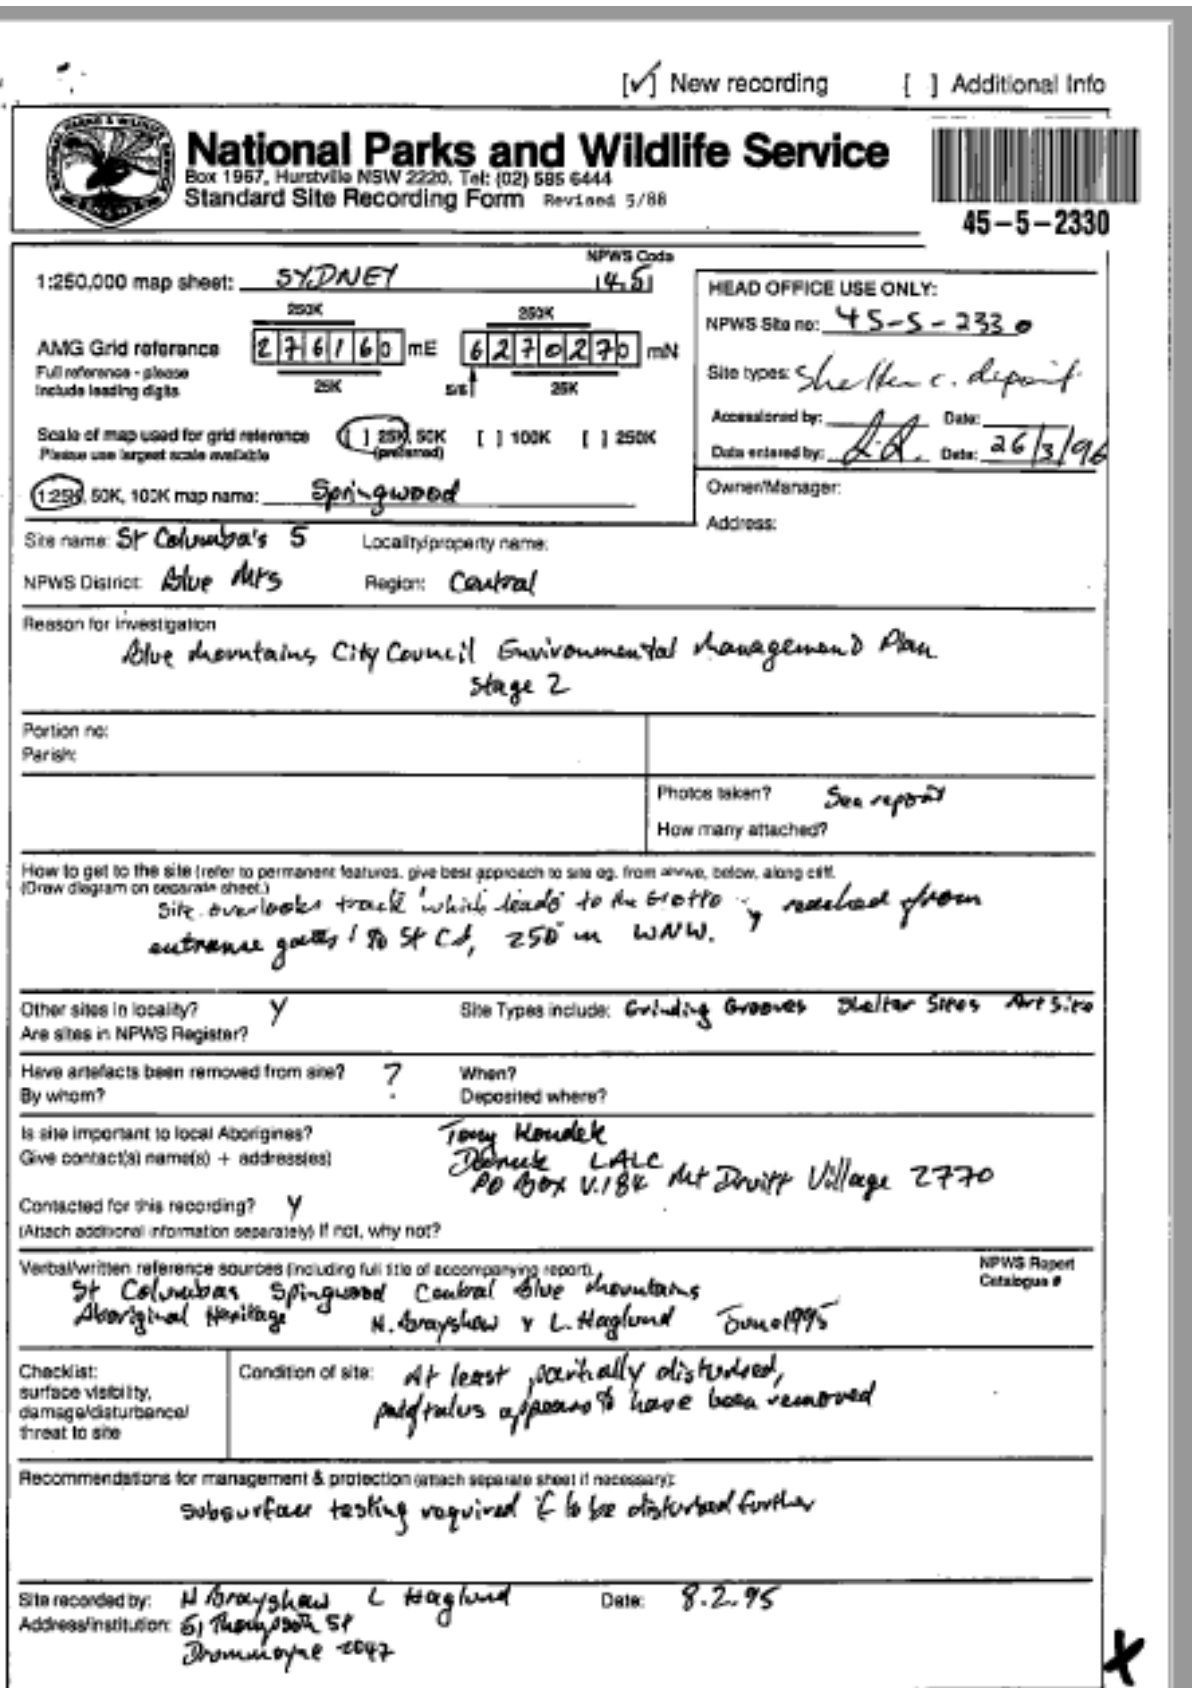 [✓] New recording [ ] Additional Info
National Parks and Wildlife Service
Box 1967, Hurstville NSW 2220. Tel: (02) 585 6444
Standard Site Recording Form Revised 5/88
45-5-2330
NPWS Code
1:250,000 map sheet: SYDNEY
HEAD OFFICE USE ONLY:
250K 250K
NPWS Site no: 45-5-2330
AMG Grid reference 276160 mE 6270270 mN
Full reference - please
include leading digits
25K 5/6 25K
Site types: Shelter c. deposit
Accessioned by: Date:
Scale of map used for grid reference [ ] 25K, 50K [ ] 100K [ ] 250K
Please use largest scale available (preferred)
Data entered by: Date: 26/3/96
1:25K, 50K, 100K map name: Springwood
Owner/Manager:
Address:
Site name: St Columba's 5 Locality/property name:
NPWS District: Blue Mts Region: Central
Reason for investigation
Blue Mountains City Council Environmental Management Plan
Stage 2
Portion no:
Parish:
Photos taken? See report
How many attached?
How to get to the site (refer to permanent features, give best approach to site eg. from above, below, along cliff.
(Draw diagram on separate sheet.)
Site overlooks track which leads to the Grotto reached from
entrance gates to St C's, 250 m WNW.
Other sites in locality? Y Site Types include: Grinding Grooves Shelter Sites Art Site
Are sites in NPWS Register?
Have artefacts been removed from site? ? When?
By whom? Deposited where?
Is site important to local Aborigines? Tony
Give contact(s) name(s) + address(es) LALC
PO Box V.184 Mt Druitt Village 2770
Contacted for this recording? Y
(Attach additional information separately) If not, why not?
Verbal/written reference sources (including full title of accompanying report).
NPWS Report
Catalogue #
St Columbas Springwood Central Blue Mountains
Aboriginal Heritage H. Brayshaw & L. Haglund June 1995
Checklist:
surface visibility,
damage/disturbance/
threat to site
Condition of site: At least partially disturbed,
talus appears to have been removed
Recommendations for management & protection (attach separate sheet if necessary):
subsurface testing required if to be disturbed further
Site recorded by: H Brayshaw L Haglund Date: 8.2.95
Address/institution: 61 Thompson St
Drummoyne 2047